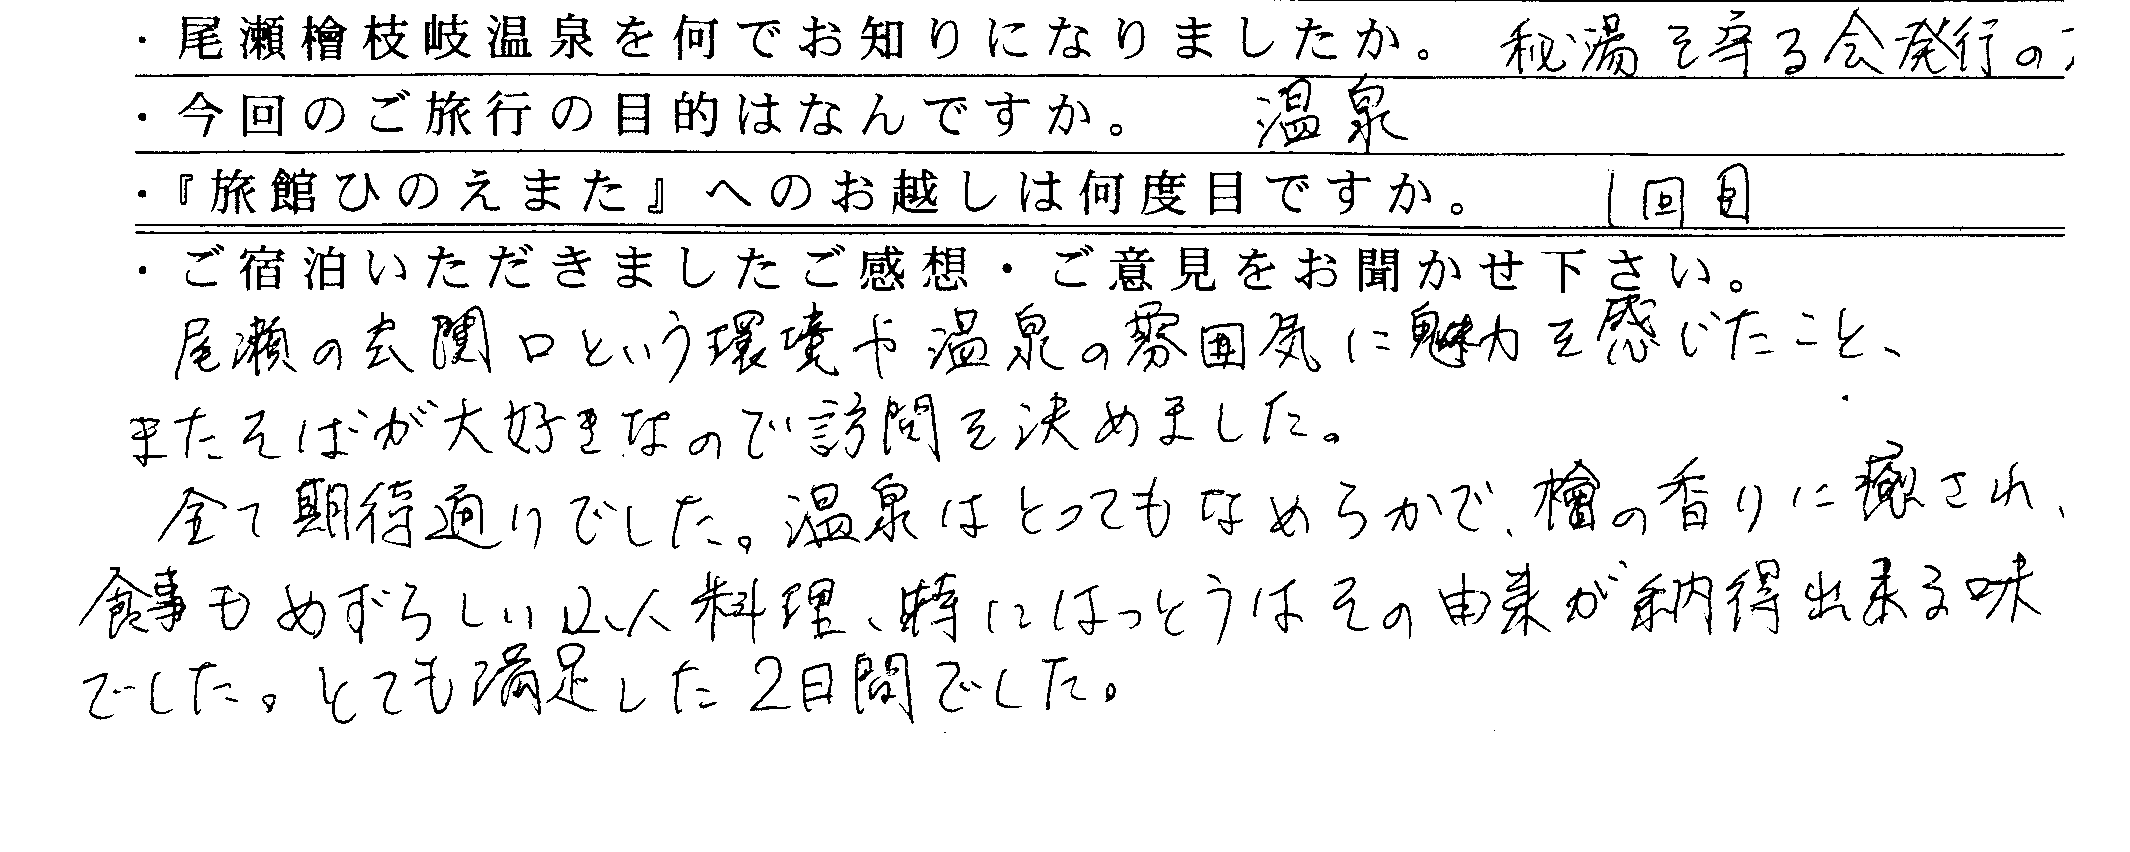 ・尾瀬檜枝岐温泉を何でお知りになりましたか。 秘湯を守る会発行の
・今回のご旅行の目的はなんですか。 温泉
・『旅館ひのえまた』へのお越しは何度目ですか。 1回目
・ご宿泊いただきましたご感想・ご意見をお聞かせ下さい。
尾瀬の玄関口という環境や温泉の雰囲気に魅力を感じたこと、
またそばが大好きなので訪問を決めました。
全て期待通りでした。温泉はとってもなめらかで、檜の香りに癒され、
食事もめずらしい山人料理、特にはっとうはその由来が納得出来る味
でした。とても満足した2日間でした。